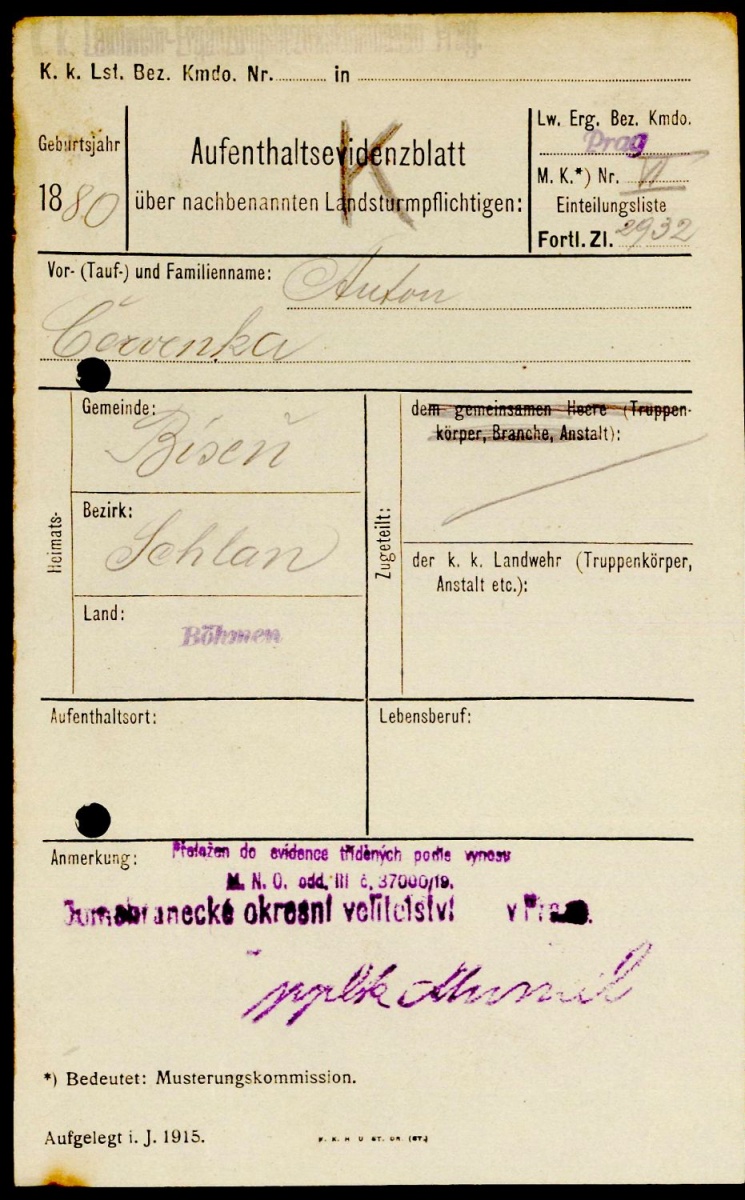 K. k. Lst. Bez. Kmdo. Nr. in
Geburtsjahr
1880
Aufenthaltsevidenzblatt
über nachbenannten Landsturmpflichtigen:
K
Lw. Erg. Bez. Kmdo.
Prag
M. K.*) Nr. VI
Einteilungsliste
Fortl. Zl. 2932
Vor- (Tauf-) und Familienname: Anton
Červenka
Heimats-
Gemeinde:
Bíseň
Bezirk:
Schlan
Land:
Böhmen
Zugeteilt:
dem gemeinsamen Heere (Truppen-
körper, Branche, Anstalt):
der k. k. Landwehr (Truppenkörper,
Anstalt etc.):
Aufenthaltsort:
Lebensberuf:
Anmerkung: Přeložen do evidence tříděných podle vynosu
M. N. O. odd. III č. 37000/19.
Domobranecké okresní velitelství v Praze.
pplk
*) Bedeutet: Musterungskommission.
Aufgelegt i. J. 1915.
K. K. H U ST. DR. (ST.)